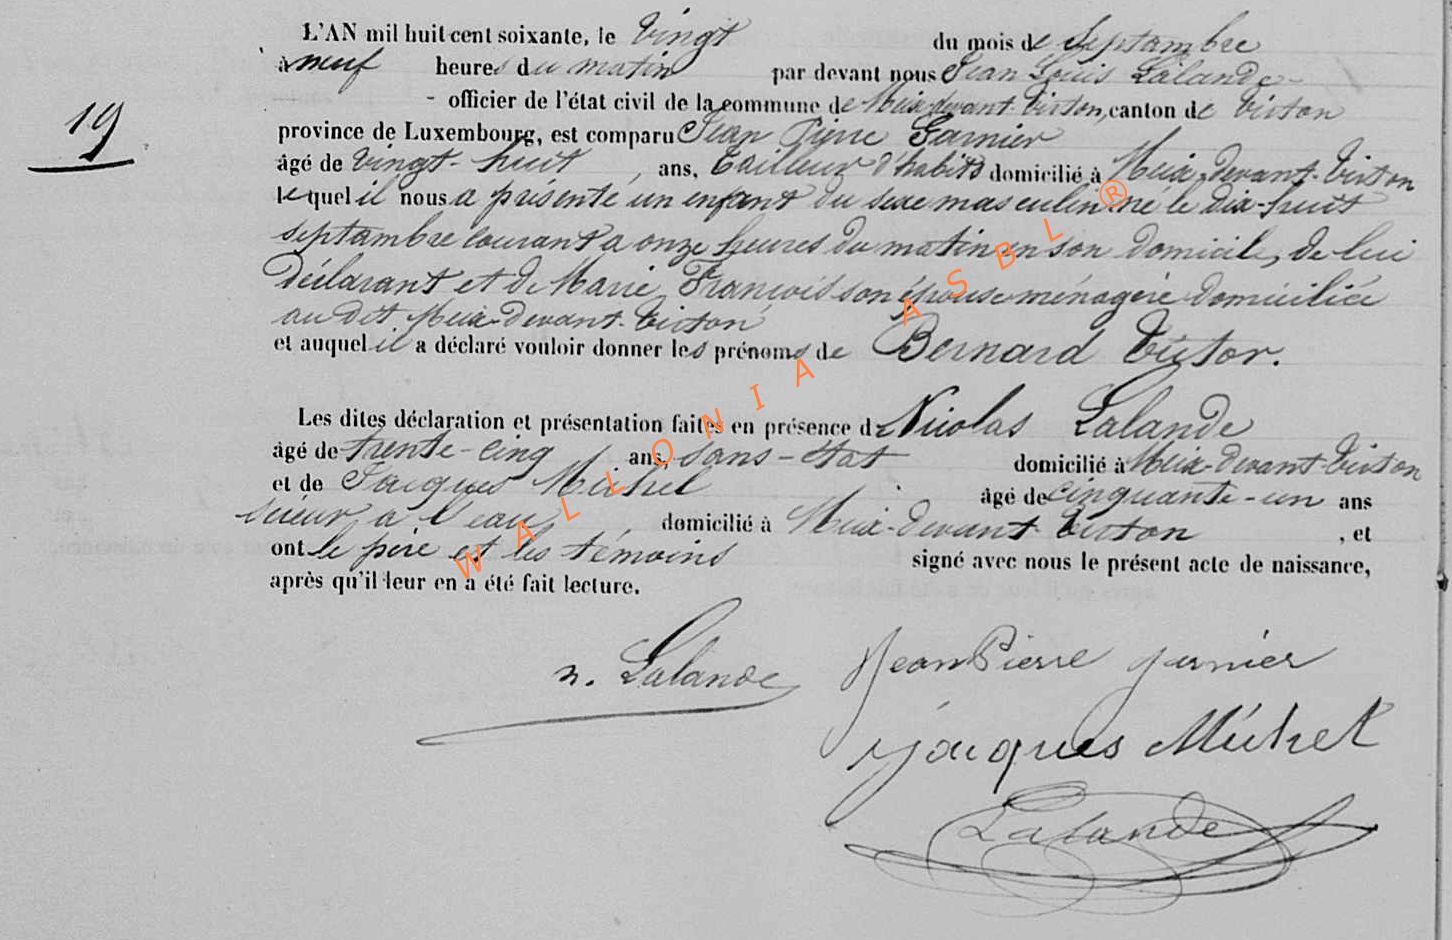 L'AN mil huit cent soixante, le Vingt du mois de Septambre
à neuf heures du matin par devant nous Jean Louis Lalande
officier de l'état civil de la commune de Meix-devant-Virton, canton de Virton
19
province de Luxembourg, est comparu Jean Pierre Garnier
âgé de Vingt-huit ans, Tailleur d'habits domicilié à Meix-devant-Virton
lequel il nous a présenté un enfant du sexe masculin né le dix-huit
septambre courant a onze heures du matin en son domicile, de lui
Déclarant et de Marie François son épouse ménagère domiciliée
au dit Meix-devant-Virton
et auquel il a déclaré vouloir donner les prénoms de Bernard Victor.
Les dites déclaration et présentation faites en présence de Nicolas Lalande
âgé de trente-cinq ans, sans-état domicilié à Meix-devant-Virton
et de Jacques Michel âgé de cinquante-un ans
à l'eau, domicilié à Meix-devant Virton, et
ont le père et les témoins signé avec nous le présent acte de naissance,
après qu'il leur en a été fait lecture.
n. Lalande Jean Pierre garnier
jacques Michel
Lalande
WALLONIA ASBL ®